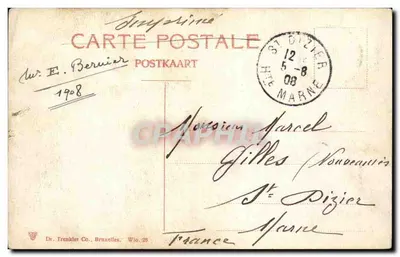 Imprimé
CARTE POSTALE
POSTKAART
ST DIZIER
12
5-8
08
Hte MARNE
E. Bernier
1908
Monsieur Marcel
Gilles (Nouveautés)
St. Dizier
Marne
France
Dr. Trenkler Co., Bruxelles.